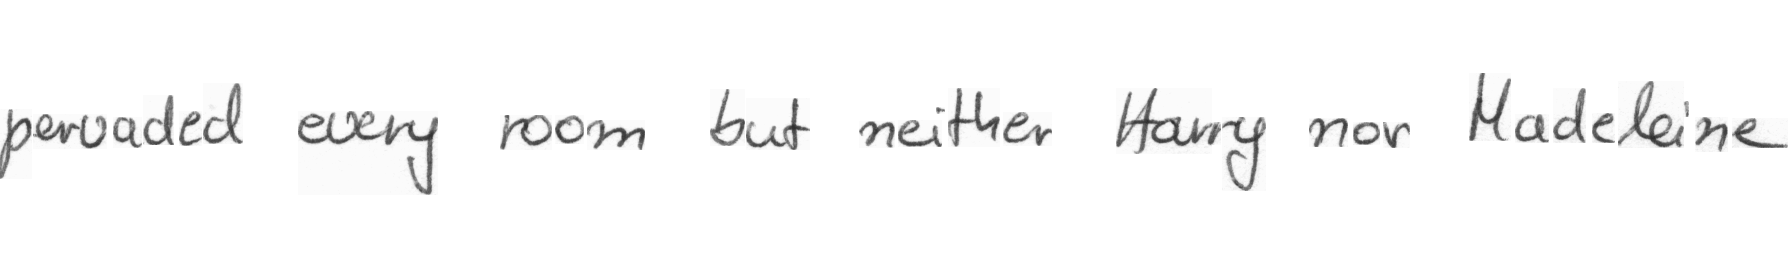 pervaded every room but neither Harry nor Madeleine